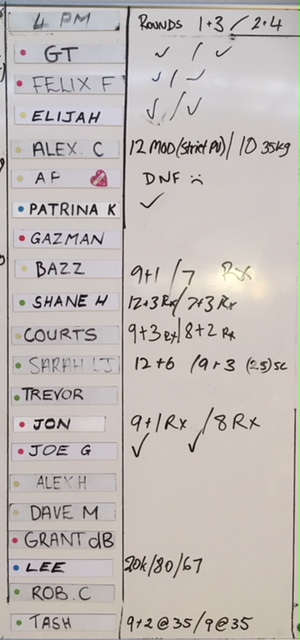 4 PM ROUNDS 1+3 / 2+4
GT ✓ / ✓
FELIX F ✓ / ✓
ELIJAH ✓ / ✓
ALEX C 12 MOD (strict PU) / 10 35kg
AF DNF :(
PATRINA K ✓
GAZMAN
BAZZ 9+1 / 7 Rx
SHANE H 12+3 Rx / 7+3 Rx
COURTS 9+3 Rx / 8+2 Rx
SARAH LJ 12+6 / 9+3 (25) sc
TREVOR
JON 9+1 Rx / 8 Rx
JOE G ✓ ✓
ALEX H
DAVE M
GRANT dB
LEE 20k/80/67
ROB. C
TASH 9+2 @ 35 / 9 @ 35